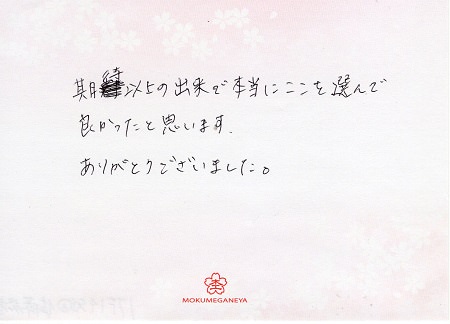 期待以上の出来で本当にここを選んで
良かったと思います.
ありがとうございました。
MOKUMEGANEYA